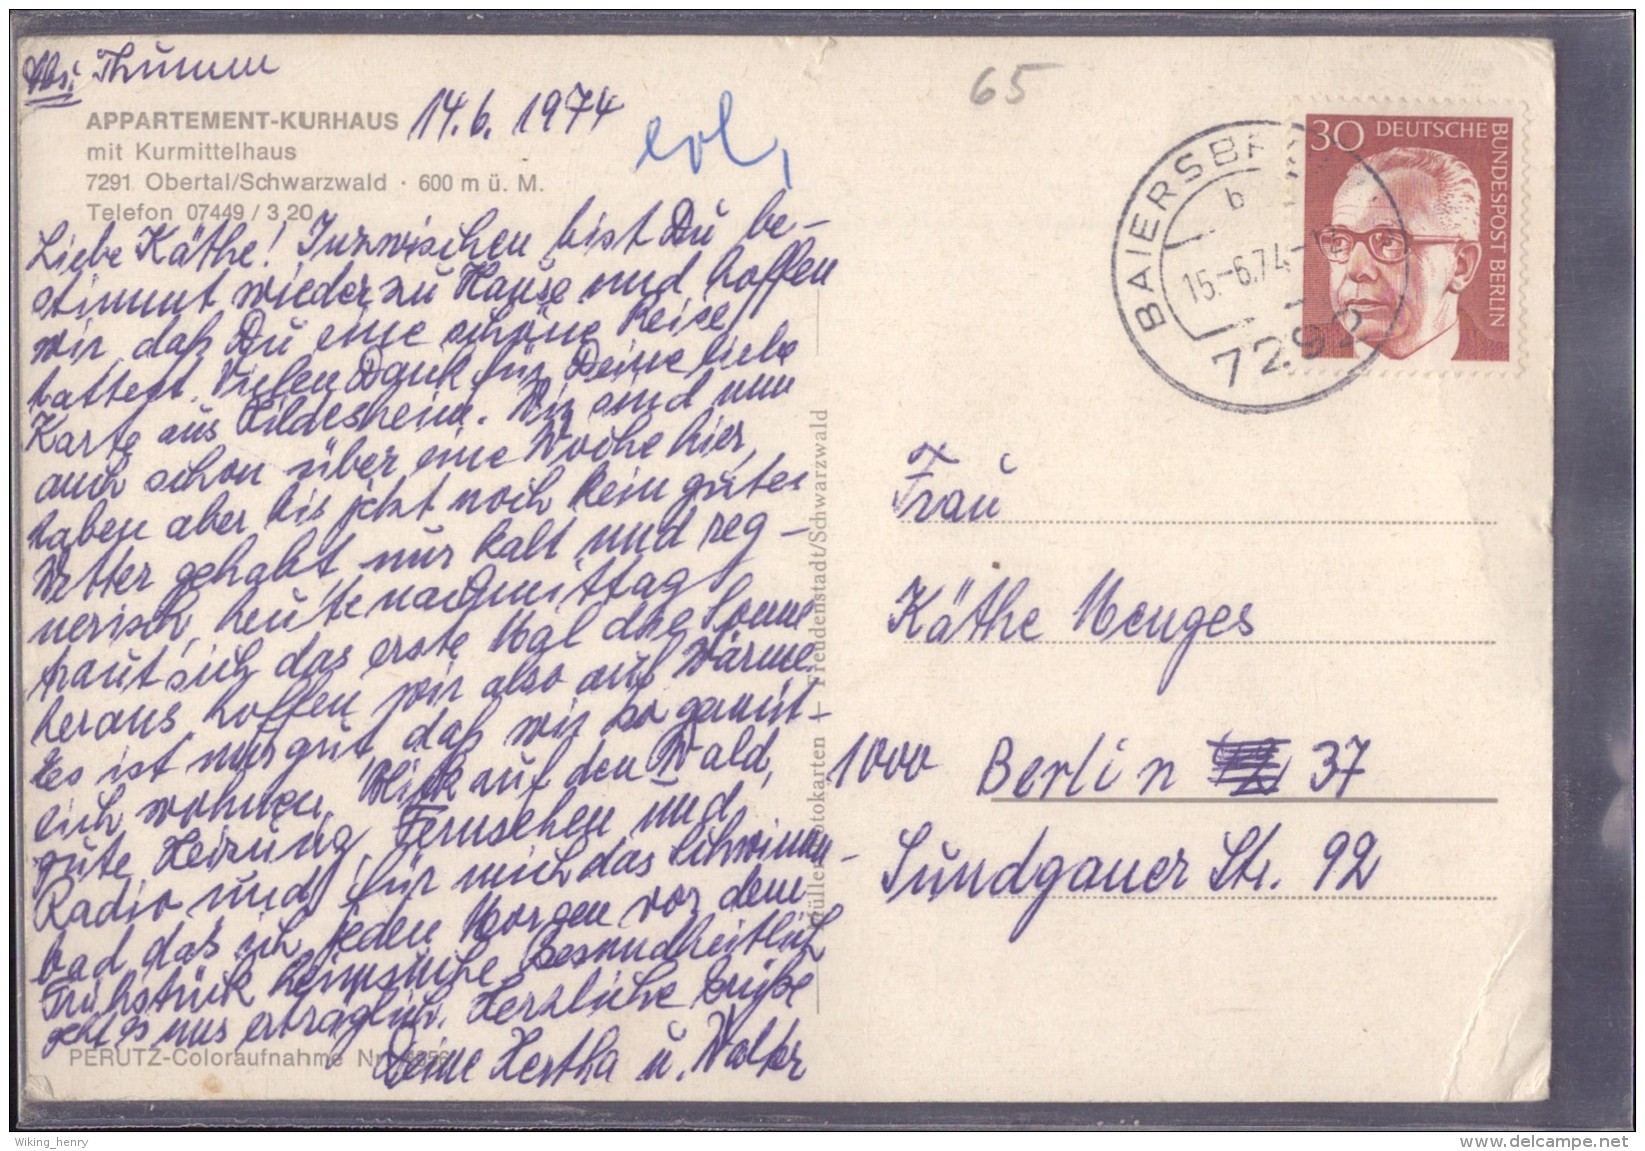 Abs: Thumm
APPARTEMENT-KURHAUS
mit Kurmittelhaus
7291 Obertal/Schwarzwald · 600 m ü. M.
Telefon 07449 / 3 20
14.6.1974
erl.
65
Liebe Käthe! Inzwischen bist Du be-
stimmt wieder zu Hause und hoffen
wir, daß Du eine schöne Reise
hattest. Vielen Dank für Deine liebe
Karte aus Hildesheim. Wir sind nun
auch schon über eine Woche hier,
haben aber bis jetzt noch kein gutes
Wetter gehabt nur kalt und reg-
nerisch, heute nachmittag
traut sich das erste Mal die Sonne
heraus, hoffen wir also auf Wärme.
Es ist nur gut, daß wir so gemüt-
lich wohnen, Blick auf den Wald,
gute Heizung, Fernsehen und
Radio und für mich das Schwimm-
bad, das ich jeden Morgen vor dem
Frühstück heimsuche. Gesundheitlich
geht es uns erträglich. Herzliche Grüße
Deine Hertha u. Walter
PERUTZ-Coloraufnahme Nr.
Müller Fotokarten — Freudenstadt/Schwarzwald
30 DEUTSCHE
BUNDESPOST BERLIN
BAIERSBR
b
15.-6.74-
7292
Frau
Käthe Menges
1000 Berlin 37
Sundgauer Str. 92
Wiking_henry
delcampe.net